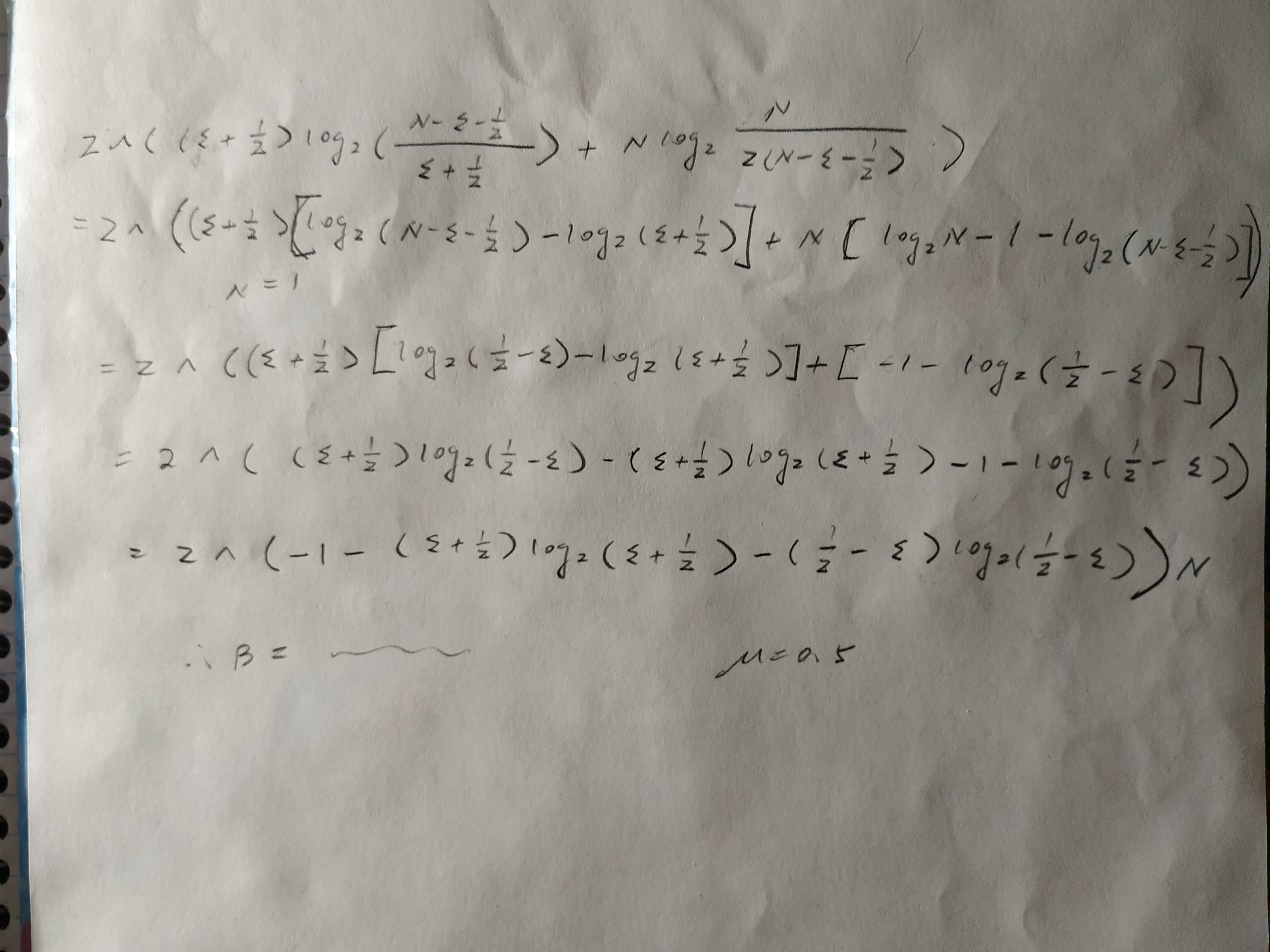 2^((ε+1/2)log₂((N-ε-1/2)/(ε+1/2)) + N log₂ N/(2(N-ε-1/2)))
=2^((ε+1/2)[log₂(N-ε-1/2)-log₂(ε+1/2)]+N[log₂N-1-log₂(N-ε-1/2)])
N=1
=2^((ε+1/2)[log₂(1/2-ε)-log₂(ε+1/2)]+[-1-log₂(1/2-ε)])
=2^((ε+1/2)log₂(1/2-ε)-(ε+1/2)log₂(ε+1/2)-1-log₂(1/2-ε))
=2^(-1-(ε+1/2)log₂(ε+1/2)-(1/2-ε)log₂(1/2-ε))N
∴ β = μ=0.5